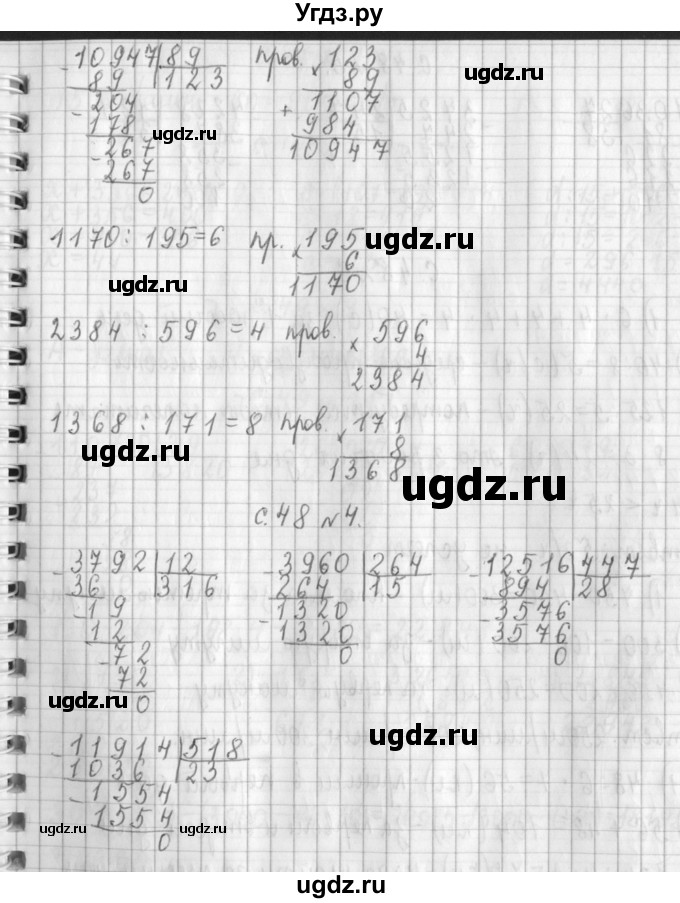 Угдз.ру
10947 89 пров. 123
89 123 × 89
- 204 + 1107
178 984
- 267 10947
267
0
ugdz.ru
ugdz.ru
1170 : 195 = 6 пр. 195
× 6
1170
ugdz.ru
ugdz.ru
2384 : 596 = 4 пров. 596
× 4
2384
1368 : 171 = 8 пров. 171
× 8
1368
ugdz.ru
ugdz.ru
с. 48 №4.
- 3792 12 - 3960 264 - 12516 447
36 316 264 15 894 28
- 19 - 1320 - 3576
12 1320 3576
- 72 0 0
72
0
ugdz.ru
ugdz.ru
- 11914 518
1036 23
- 1554
1554
0
ugdz.ru
ugdz.ru
ugdz.ru